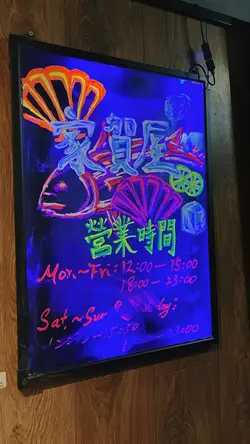 家賀屋
營業時間
Mon.~Fri: 12:00 — 15:00
18:00 — 23:00
Sat.~Sun